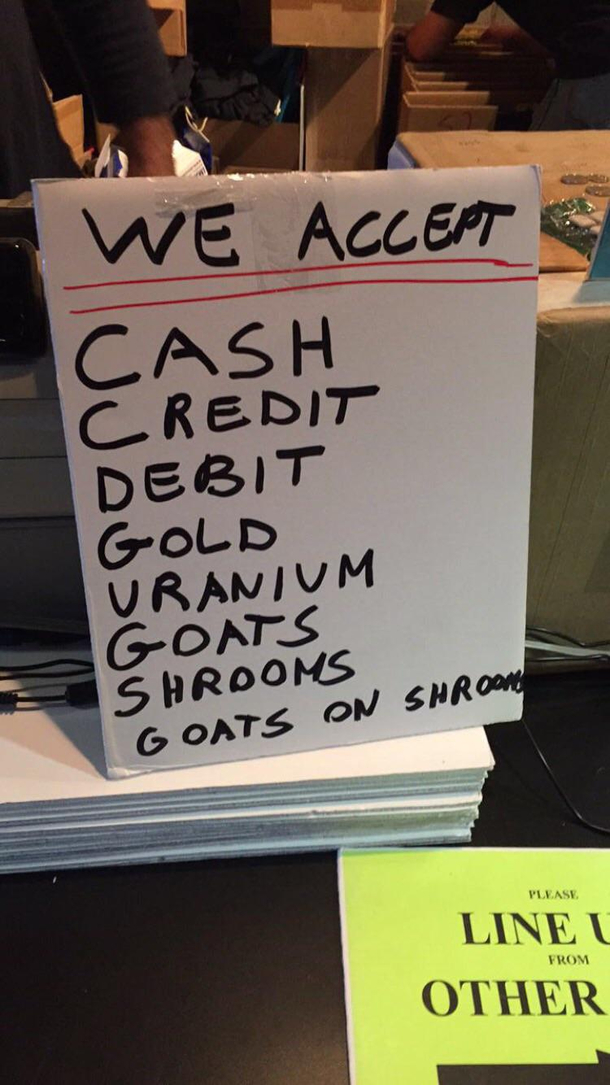 WE ACCEPT
CASH
CREDIT
DEBIT
GOLD
URANIUM
GOATS
SHROOMS
GOATS ON SHROOMS
PLEASE
LINE
FROM
OTHER